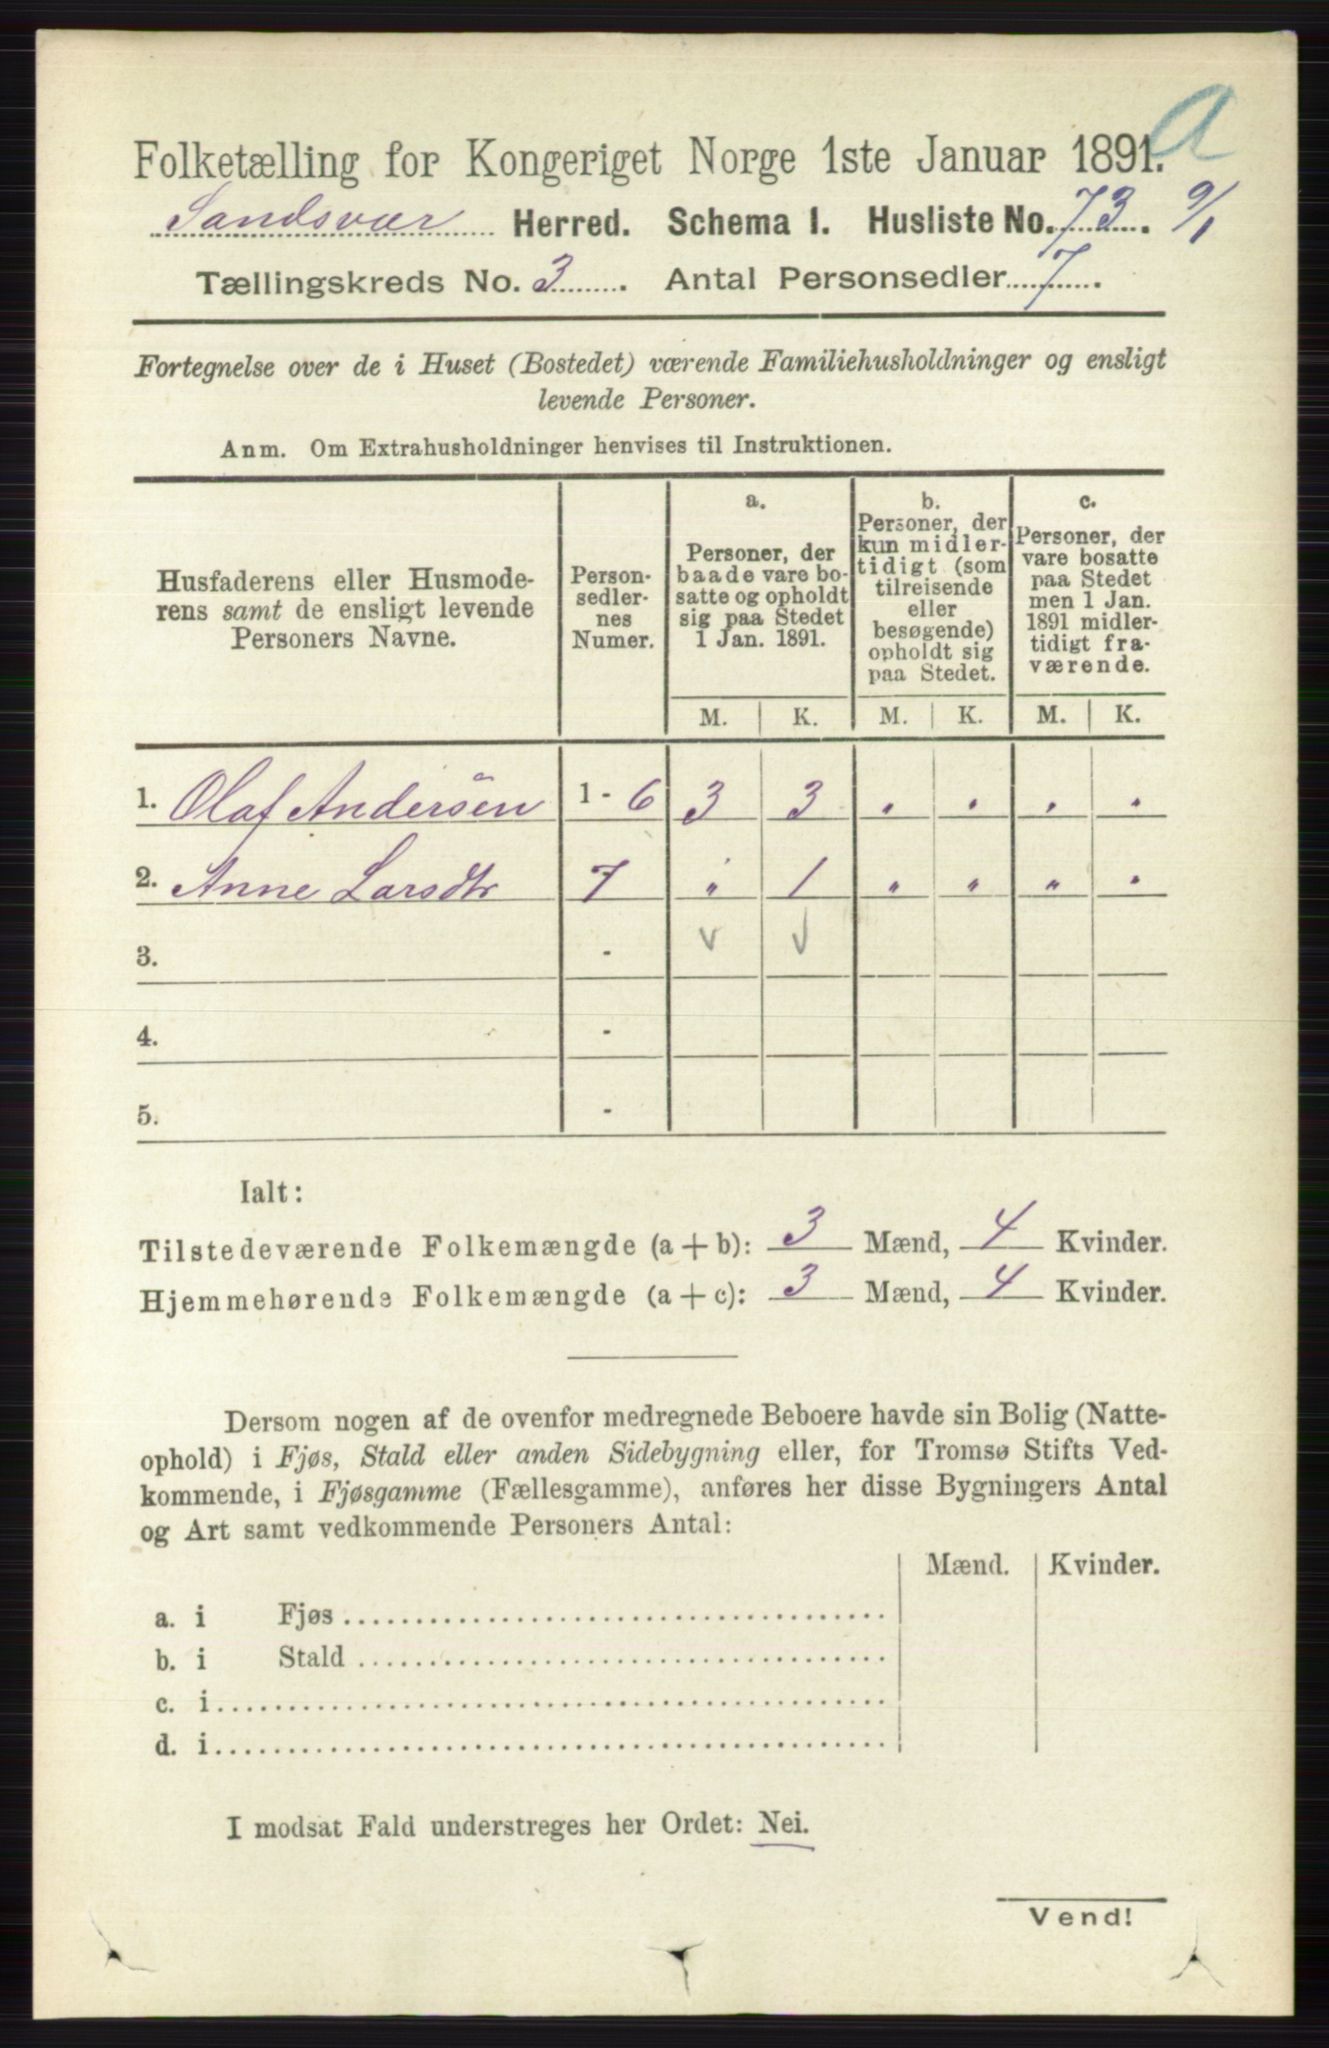 a
Folketælling for Kongeriget Norge 1ste Januar 1891.
Sandsvær Herred. Schema I. Husliste No. 73. 9/1
Tællingskreds No. 3. Antal Personsedler 7.
Fortegnelse over de i Huset (Bostedet) værende Familiehusholdninger og ensligt
levende Personer.
Anm. Om Extrahusholdninger henvises til Instruktionen.
Husfaderens eller Husmode-
rens samt de ensligt levende
Personers Navne.
Person-
sedler-
nes
Numer.
a.
Personer, der
baade vare bo-
satte og opholdt
sig paa Stedet
1 Jan. 1891.
b.
Personer, der
kun midler-
tidigt (som
tilreisende
eller
besøgende)
opholdt sig
paa Stedet.
c.
Personer, der
vare bosatte
paa Stedet
men 1 Jan.
1891 midler-
tidigt fra-
værende.
M. K. M. K. M. K.
1. Olaf Andersen 1 - 6 3 3 " " " "
2. Anne Larsdtr 7 " 1 " " " "
3. -
4. -
5. -
Ialt:
Tilstedeværende Folkemængde (a + b): 3 Mænd, 4 Kvinder.
Hjemmehørende Folkemængde (a + c): 3 Mænd, 4 Kvinder.
Dersom nogen af de ovenfor medregnede Beboere havde sin Bolig (Natte-
ophold) i Fjøs, Stald eller anden Sidebygning eller, for Tromsø Stifts Ved-
kommende, i Fjøsgamme (Fællesgamme), anføres her disse Bygningers Antal
og Art samt vedkommende Personers Antal:
Mænd. Kvinder.
a. i Fjøs
b. i Stald
c. i
d. i
I modsat Fald understreges her Ordet: Nei.
Vend!